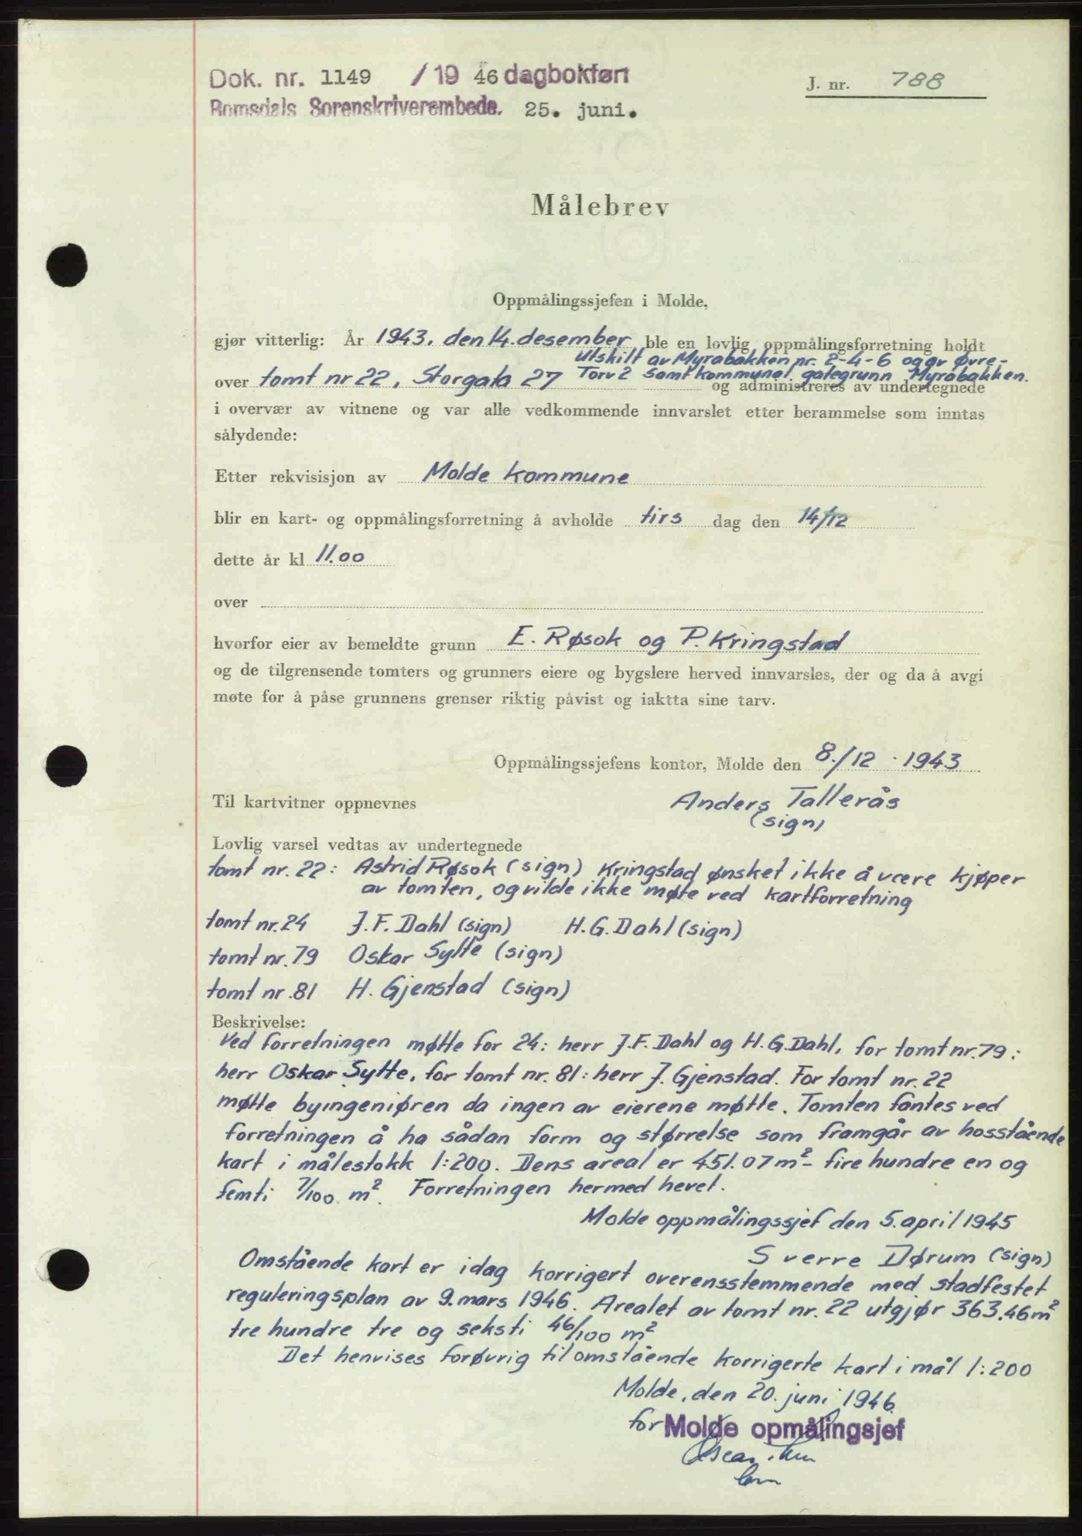 Dok. nr. 1149 /19 46 dagbokført
J. nr. 788
Romsdals Sorenskriverembede. 25. juni.
Målebrev
Oppmålingssjefen i Molde,
gjør vitterlig: År 1943, den 14. desember ble en lovlig oppmålingsforretning holdt
utskilt av Myrabakken nr. 2-4-6 og av Øvre-
over tomt nr 22, Storgata 27 Torv 2 samt kommunal gategrunn Myrabakken.
og administreres av undertegnede
i overvær av vitnene og var alle vedkommende innvarslet etter berammelse som inntas
sålydende:
Etter rekvisisjon av Molde kommune
blir en kart- og oppmålingsforretning å avholde tirs dag den 14/12
dette år kl 11.00
over
hvorfor eier av bemeldte grunn E. Røsok og P. Kringstad
og de tilgrensende tomters og grunners eiere og bygslere herved innvarsles, der og da å avgi
møte for å påse grunnens grenser riktig påvist og iaktta sine tarv.
Oppmålingssjefens kontor, Molde den 8./12 · 1943
Til kartvitner oppnevnes Anders Tallerås
(sign)
Lovlig varsel vedtas av undertegnede
tomt nr. 22: Astrid Røsok (sign) Kringstad ønsket ikke å være kjøper
av tomten, og vilde ikke møte ved kartforretning
tomt nr. 24 J. F. Dahl (sign) H. G. Dahl (sign)
tomt nr. 79 Oskar Sylte (sign)
tomt nr. 81 H. Gjenstad (sign)
Beskrivelse:
Ved forretningen møtte for 24: herr J.F. Dahl og H. G. Dahl, for tomt nr. 79:
herr Oskar Sylte, for tomt nr. 81: herr J. Gjenstad. For tomt nr. 22
møtte byingeniøren da ingen av eierene møtte. Tomten fantes ved
forretningen å ha sådan form og størrelse som framgår av hosstående
kart i målestokk 1:200. Dens areal er 451.07 m² - fire hundre en og
femti 7/100 m². Forretningen hermed hevet.
Molde oppmålingssjef den 5. april 1945
Sverre Dørum (sign)
Omstående kart er idag korrigert overensstemmende med stadfestet
reguleringsplan av 9. mars 1946. Arealet av tomt nr. 22 utgjør 363,46 m²
tre hundre tre og seksti 46/100 m²
Det henvises forøvrig til omstående korrigerte kart i mål 1:200
Molde, den 20. juni 1946
for Molde opmålingsjef